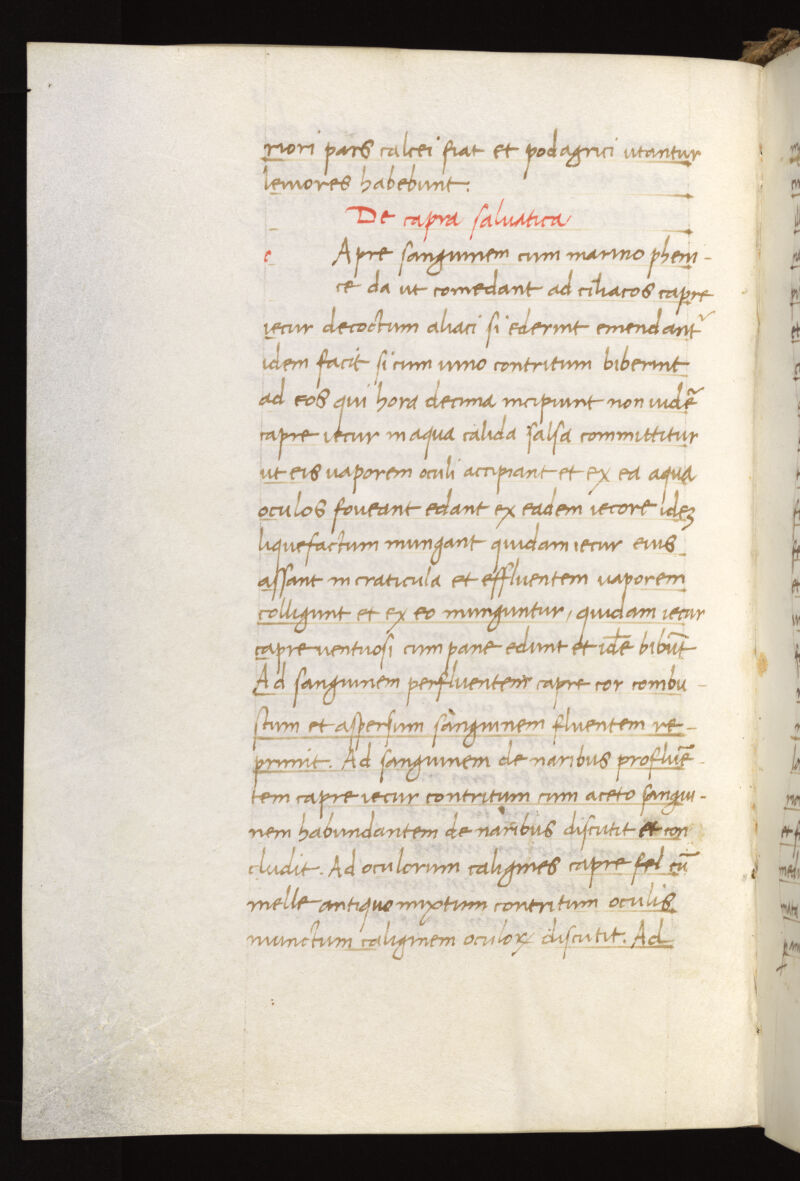 riori pars calcei fiat et podagrici utantur
leuiores habebunt:
De capra saluatica
c Apre sanguinem cum marino pheni-
ce da ut comedant ad ciliacos capre
iecur decoctum aliaci si ederint emendantʳ
idem facit si cum uino contritum biberint
ad eos qui hora decima incipiunt non uidẽ
capre iecur in aqua calida salsa committitur
ut eis uaporem oculi accipiant et ex ea aqua
oculos foueant edant ex eadem iecore ideꝫ
liquefactum inungant quidam iecur eius
assant in craticula et effluentem uaporem
colligunt et ex eo inunguntur, quidam iecur
capre uentuosi cum pane edunt et idẽ bibũt
Ad sanguinem perfluentem capre cor combu-
stum et aspersum sanguinem fluentem re-
primit. Ad sanguinem de naribus profluẽ-
tem capre iecur contritum cum aceto sangui-
nem habundantem de naribus discutit et con
cludit. Ad oculorum caligines capre fel cũ
melle antiquo mixtum contritum oculis
inunctum caliginem oculoꝝ discutit. Ad